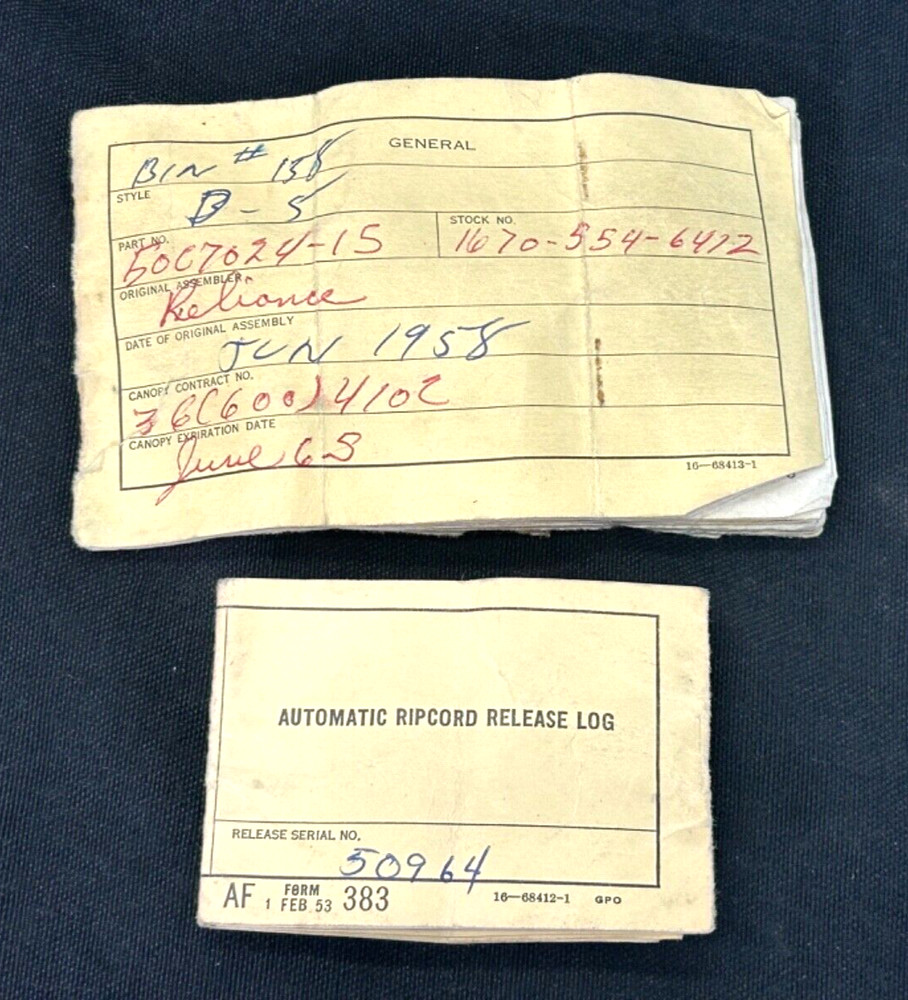 GENERAL
BIN # 158
STYLE
B-5
PART NO.
50C7024-15
STOCK NO.
1670-554-6472
ORIGINAL ASSEMBLER
Reliance
DATE OF ORIGINAL ASSEMBLY
JUN 1958
CANOPY CONTRACT NO.
36(600)4102
CANOPY EXPIRATION DATE
June 65
16—68413-1
AUTOMATIC RIPCORD RELEASE LOG
RELEASE SERIAL NO.
50964
AF FORM 1 FEB 53 383
16—68412-1 GPO